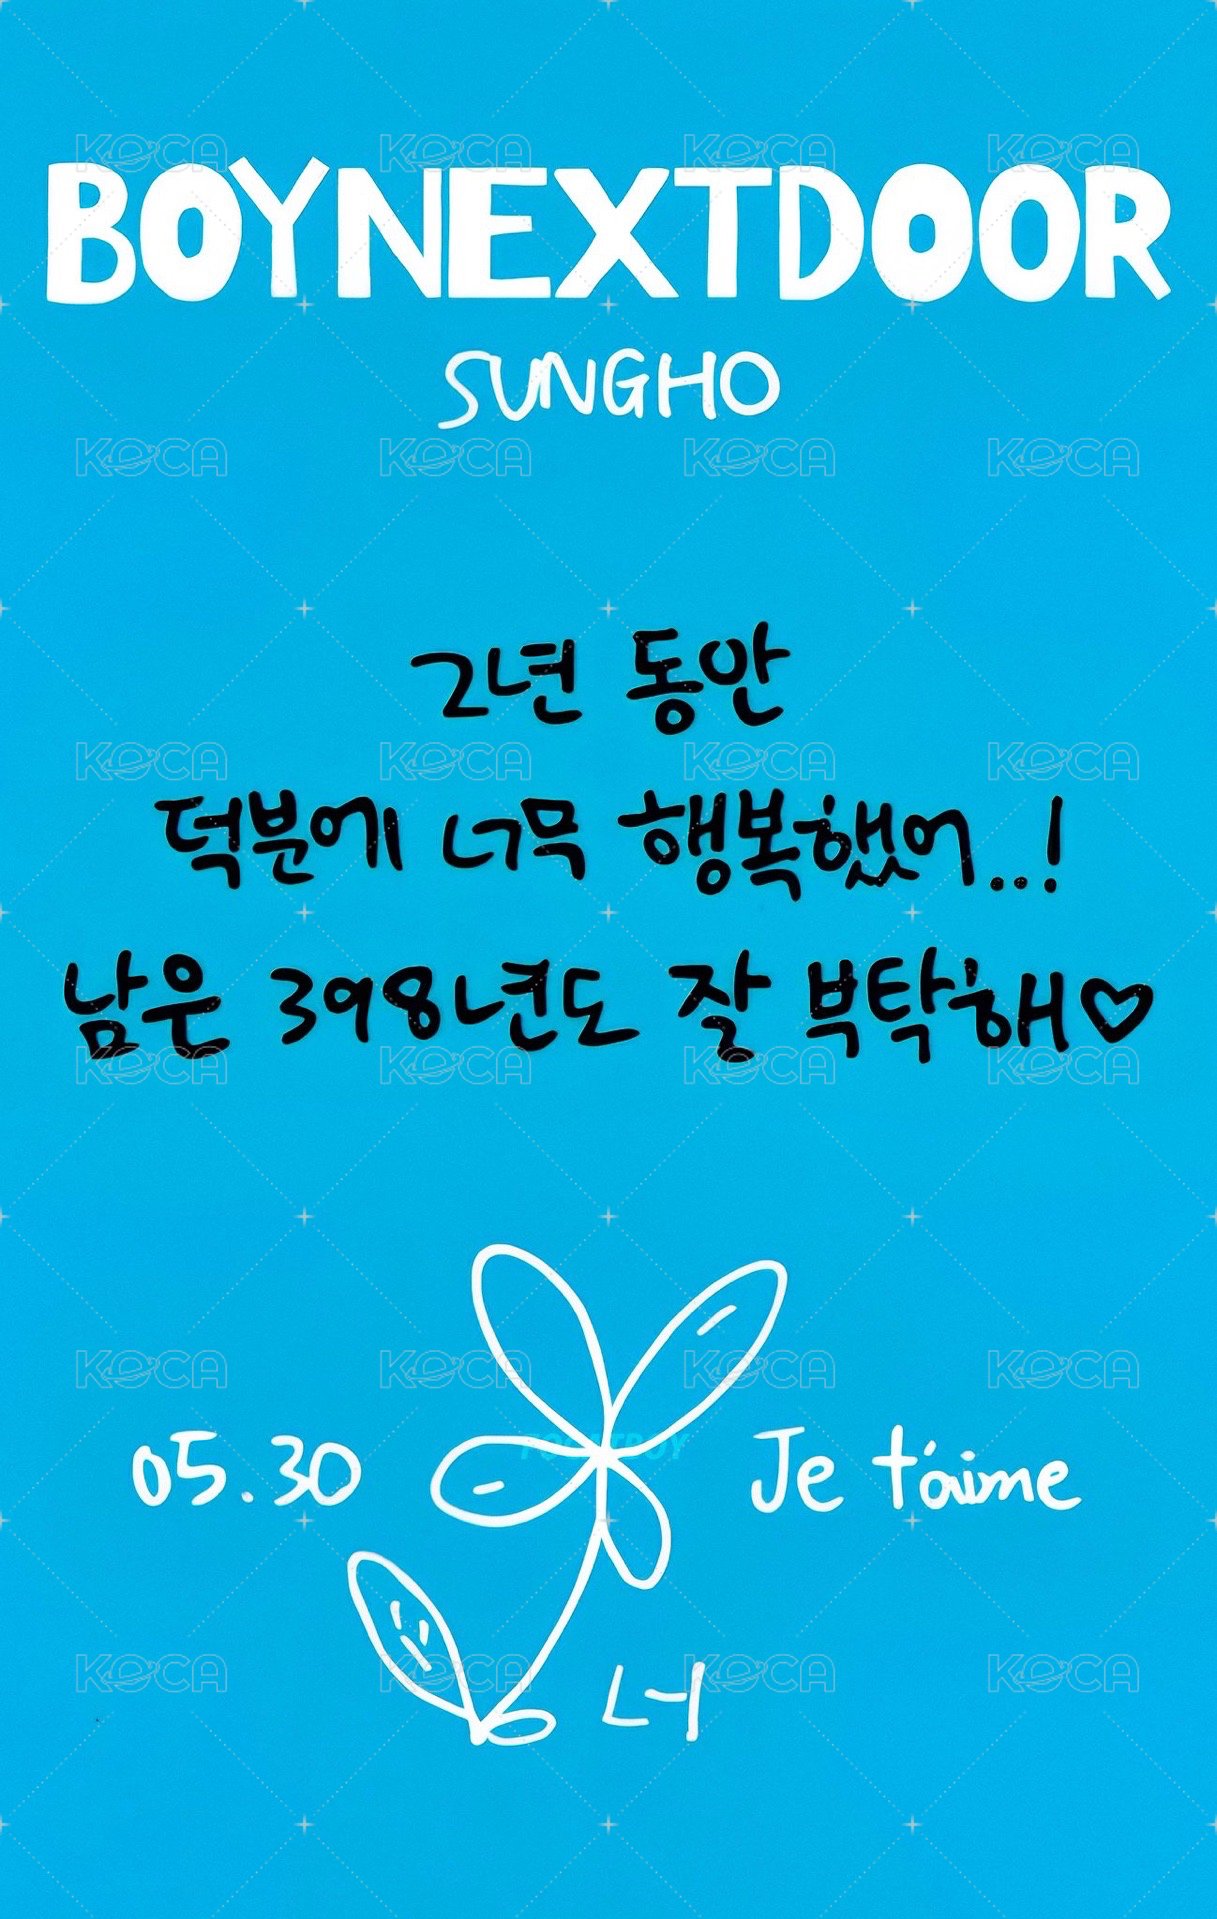 BOYNEXTDOOR
SUNGHO
2년 동안
덕분에 너무 행복했어..!
남은 398년도 잘 부탁해♡
05.30
Je t'aime
너
KOCA